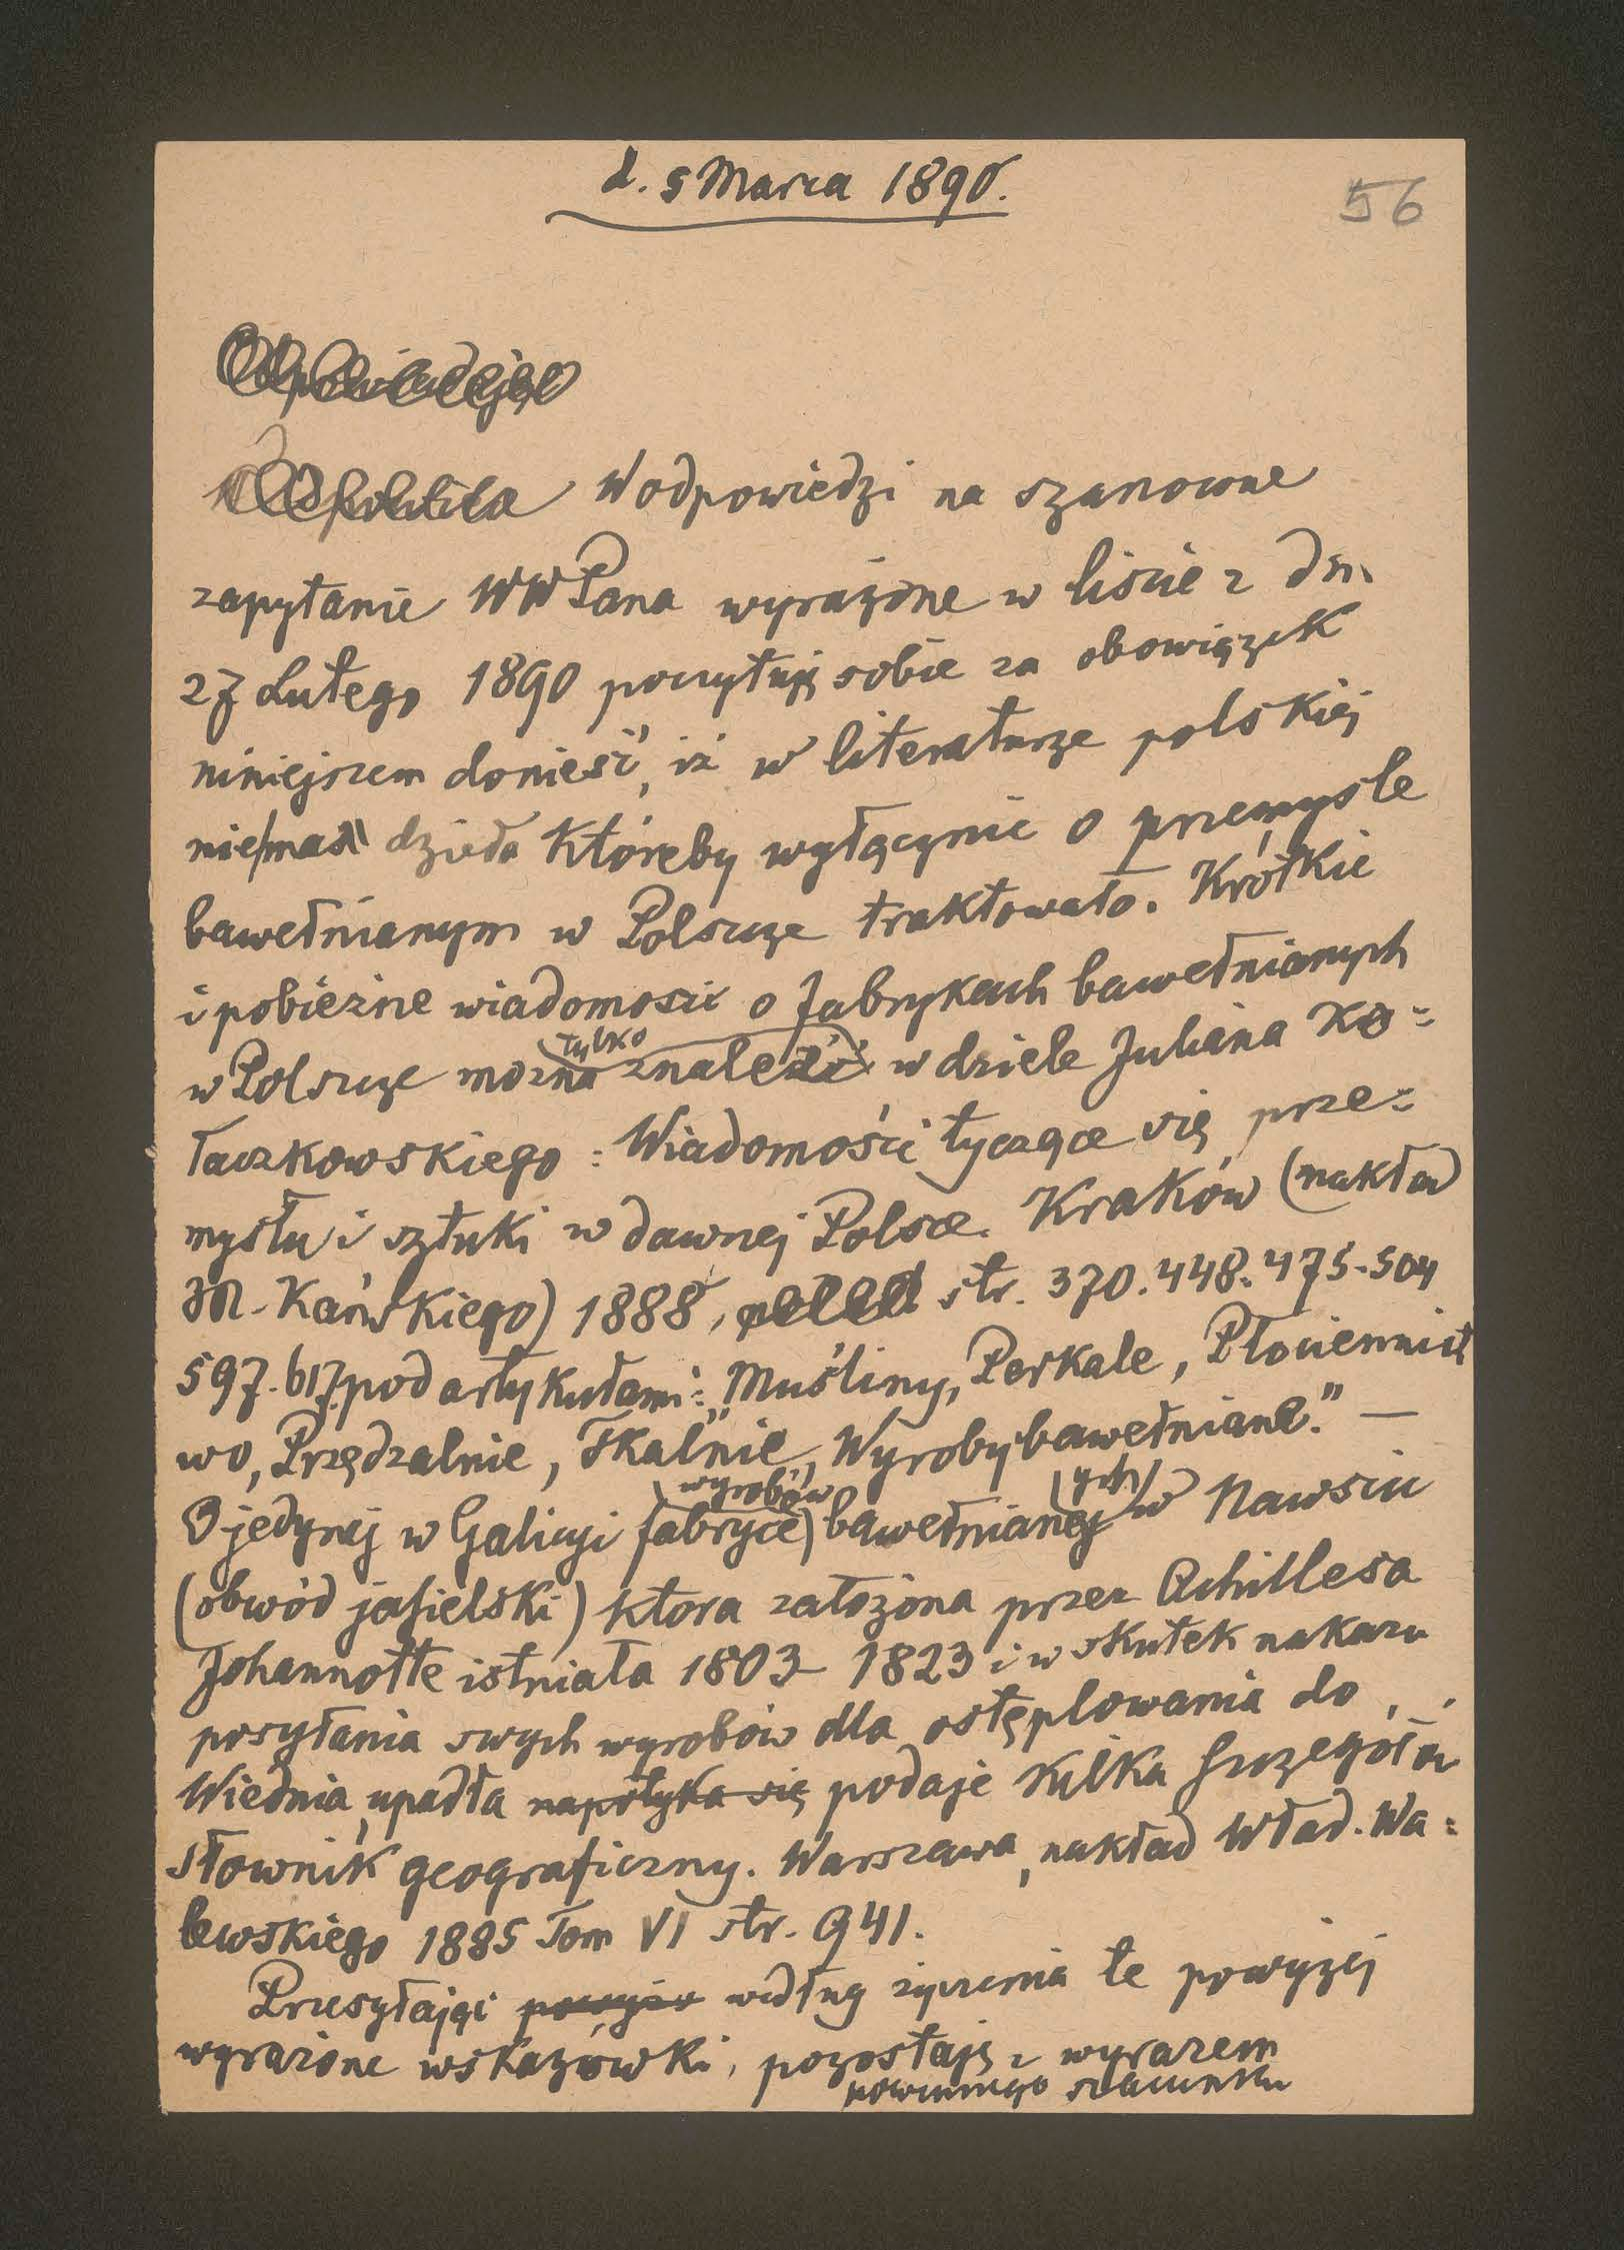 d. 5 Marca 1890.
56
W odpowiedzi na szanowne
zapytanie WW Pana wyrażone w liście z dn.
27 Lutego 1890 poczytuję sobie za obowiązek
niniejszem donieść, iż w literaturze polskiej
niema dzieła któreby wyłącznie o przemyśle
bawełnianym w Polszcze traktowało. Krótkie
i pobieżne wiadomości o fabrykach bawełnianych
tylko
w Polszcze można znaleźć w dziele Juliana Ko=
łaczkowskiego: Wiadomości tyczące się prze=
mysłu i sztuki w dawnej Polsce. Kraków (nakład
M. Kańskiego) 1888, str. 370. 448. 475. 504
597. 617. pod artykułami: „Muśliny, Perkale, Płóciennict
wo, Przędzalnie, Tkalnie, Wyroby bawełniane." —
wyrobów ych
O jedynej w Galicyi fabryce bawełnianej w Nawsiu
(obwód jasielski) która założona przez Achillesa
Johannotte istniała 1803– 1823 i w skutek nakazu
posyłania swych wyrobów dla ostęplowania do
Wiednia, upadła napotyka się podaje kilka szczegółów
Słownik geograficzny. Warszawa, nakład Wład. Wa=
lewskiego 1885 Tom VI str. 941.
Przesyłając według życzenia te powyżej
wyrażone wskazówki, pozostaję z wyrazem
powinnego szacunku